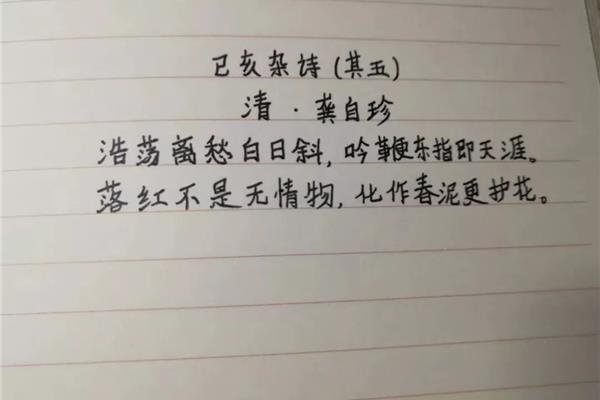 已亥杂诗(其五)
清·龚自珍
浩荡离愁白日斜,吟鞭东指即天涯。
落红不是无情物,化作春泥更护花。